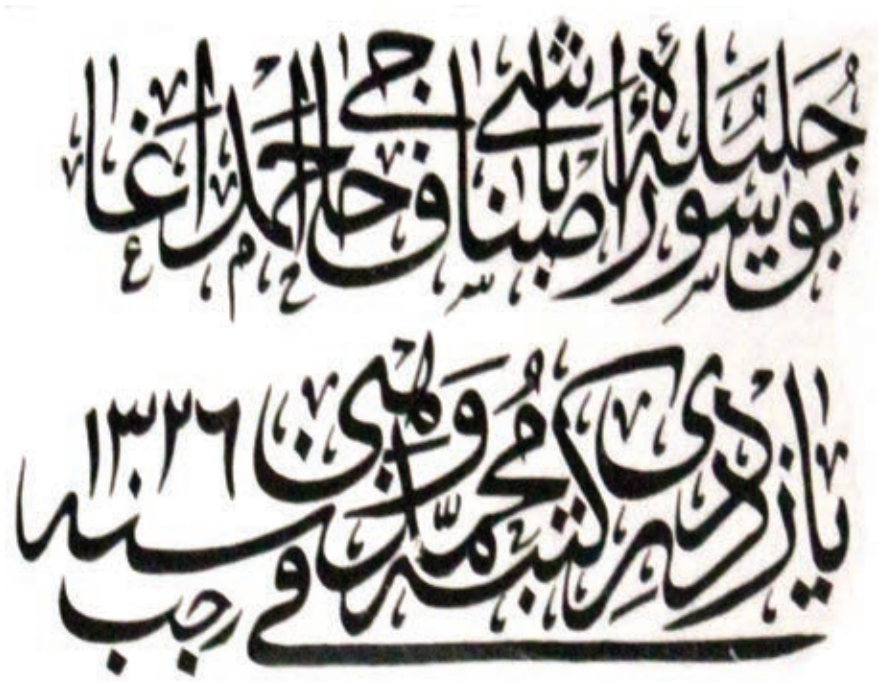 بو سورهٔ جليلهٔ اصناف باشى حاجى احمد اغا
يازدردى كتبه محمد وهبى فى رجب سنه ١٣٢٦